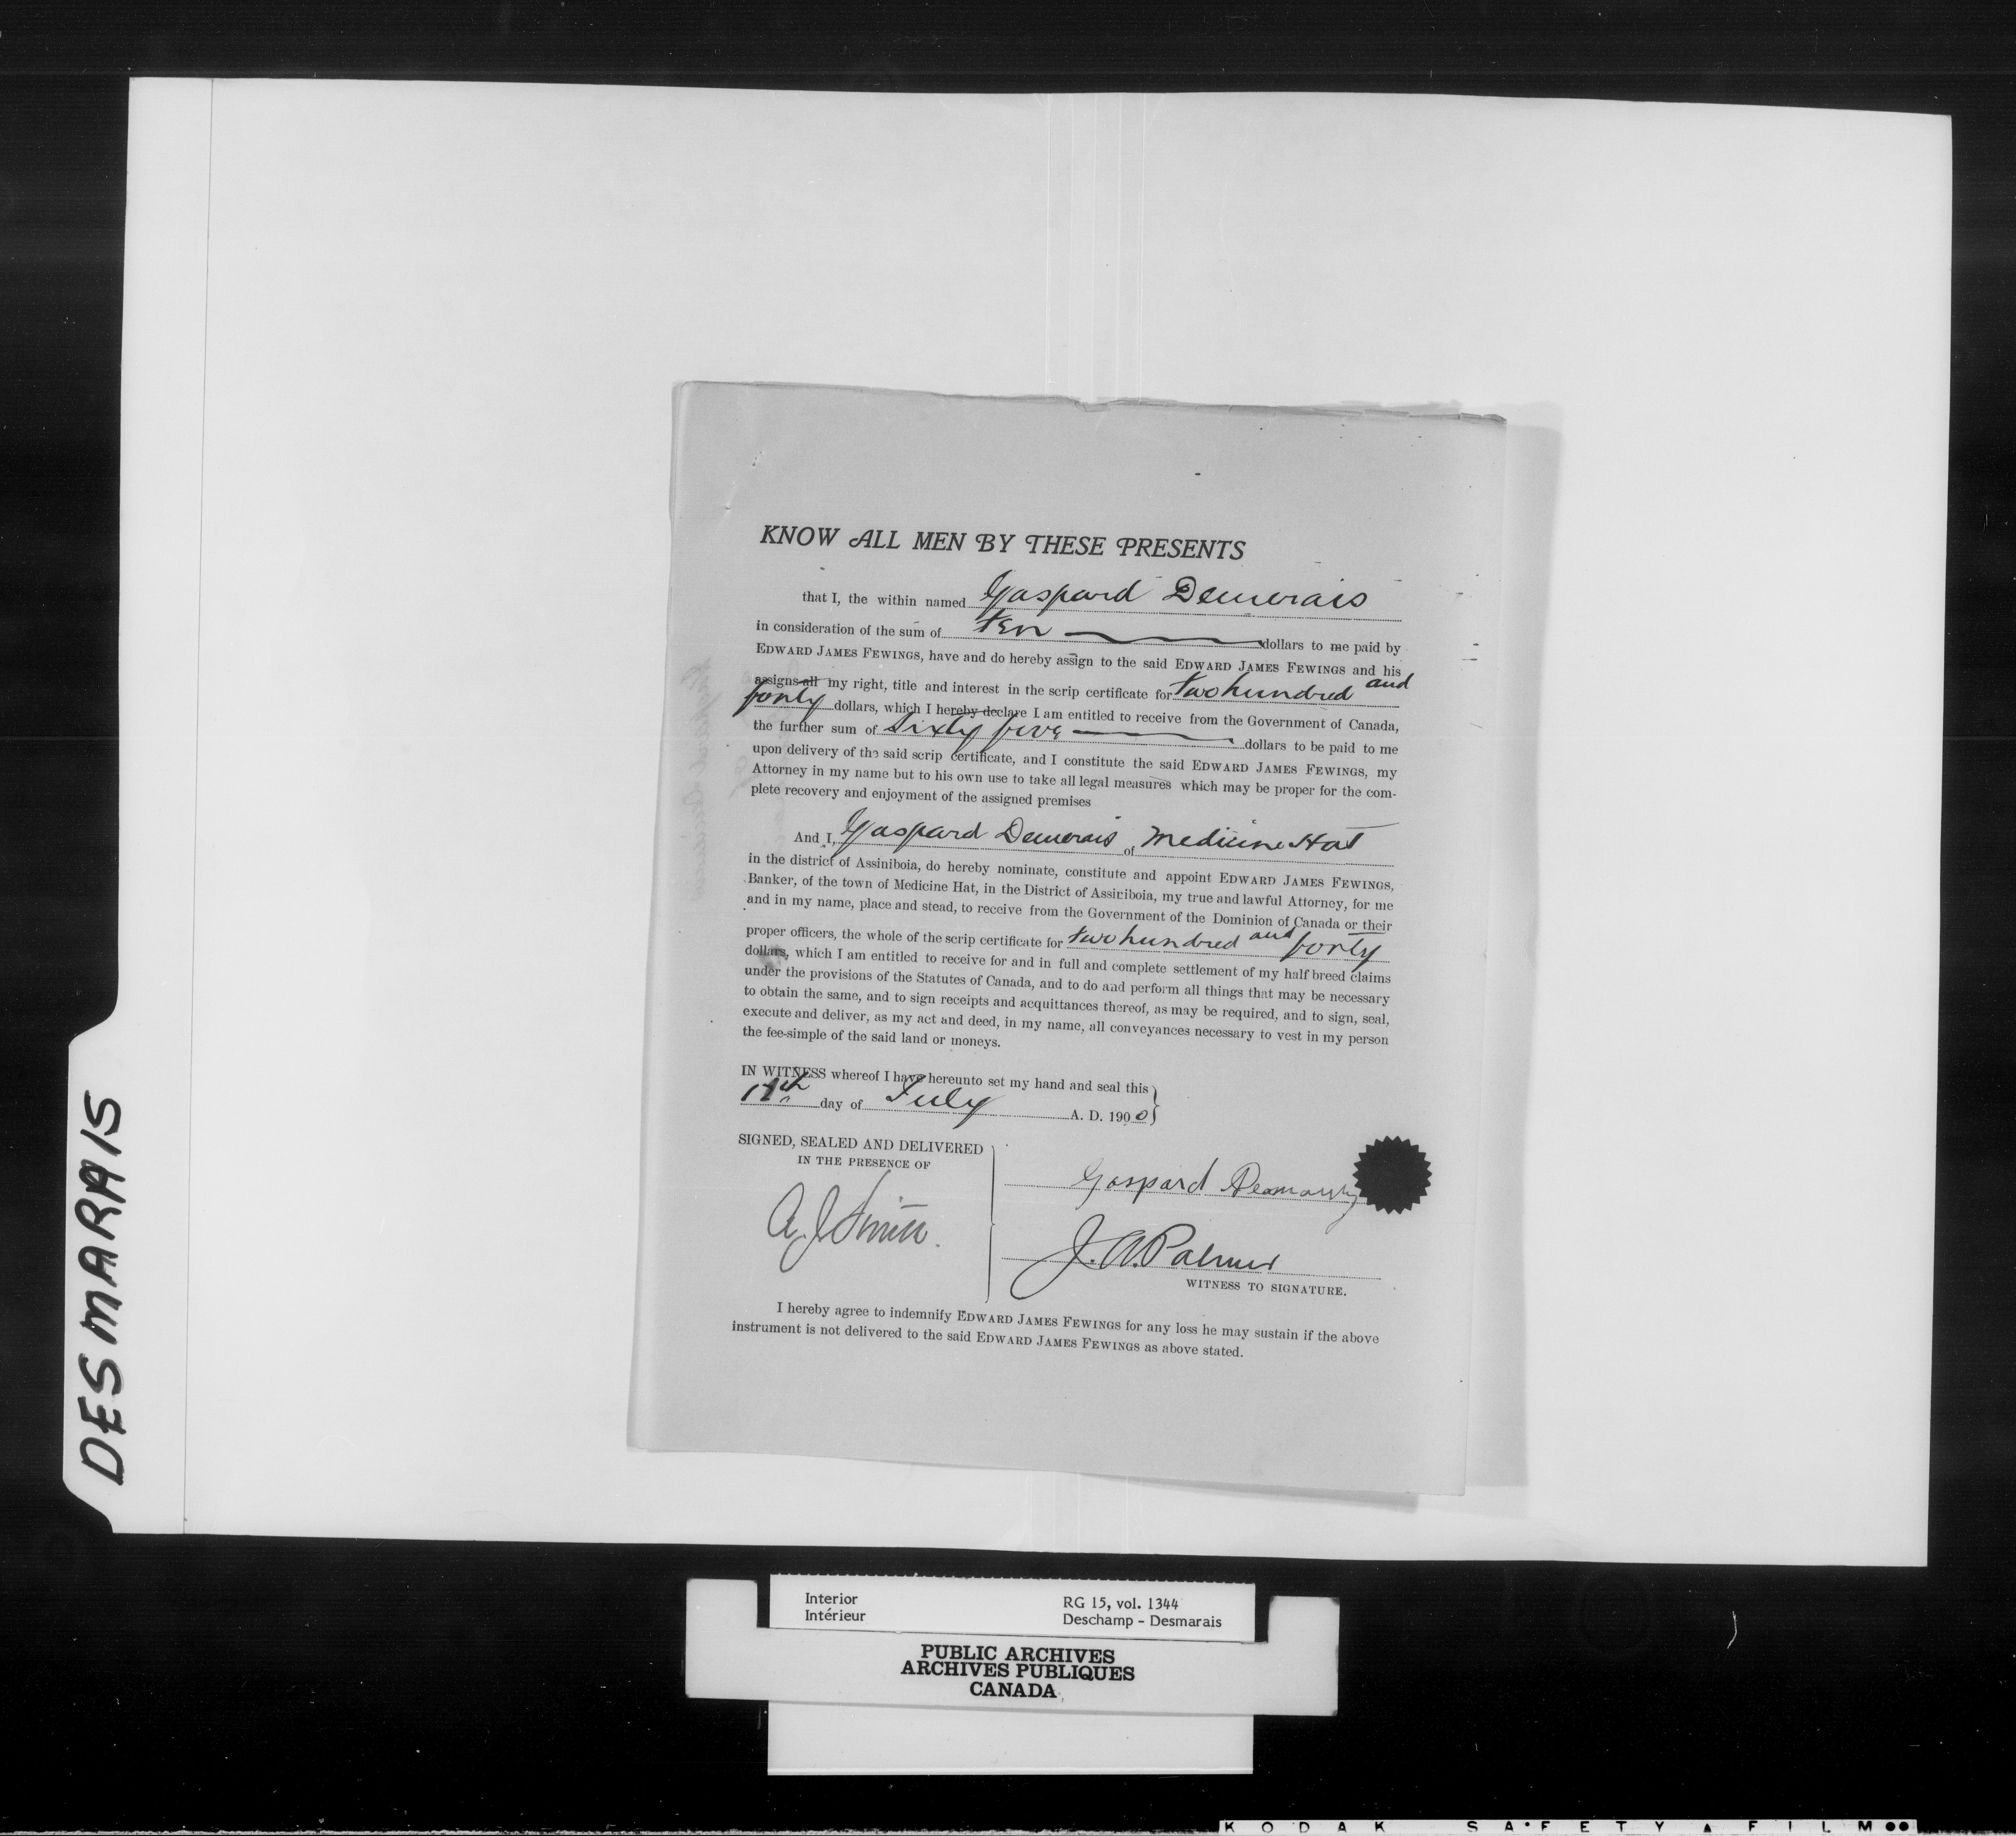 KNOW ALL MEN BY THESE PRESENTS
that I, the within named Gaspard Demerais
in consideration of the sum of ten dollars to me paid by
EDWARD JAMES FEWINGS, have and do hereby assign to the said EDWARD JAMES FEWINGS and his
assigns all my right, title and interest in the scrip certificate for two hundred and
forty dollars, which I hereby declare I am entitled to receive from the Government of Canada,
the further sum of Sixty five dollars to be paid to me
upon delivery of the said scrip certificate, and I constitute the said EDWARD JAMES FEWINGS, my
Attorney in my name but to his own use to take all legal measures which may be proper for the com-
plete recovery and enjoyment of the assigned premises
And I, Gaspard Demerais of Medicine Hat
in the district of Assiniboia, do hereby nominate, constitute and appoint EDWARD JAMES FEWINGS,
Banker, of the town of Medicine Hat, in the District of Assiniboia, my true and lawful Attorney, for me
and in my name, place and stead, to receive from the Government of the Dominion of Canada or their
proper officers, the whole of the scrip certificate for two hundred and forty
dollars, which I am entitled to receive for and in full and complete settlement of my half breed claims
under the provisions of the Statutes of Canada, and to do and perform all things that may be necessary
to obtain the same, and to sign receipts and acquittances thereof, as may be required, and to sign, seal,
execute and deliver, as my act and deed, in my name, all conveyances necessary to vest in my person
the fee-simple of the said land or moneys.
IN WITNESS whereof I have hereunto set my hand and seal this
day of July A. D. 1900
SIGNED, SEALED AND DELIVERED
IN THE PRESENCE OF
Gaspard
A. J. Smith.
J. A. Palmer
WITNESS TO SIGNATURE.
I hereby agree to indemnify EDWARD JAMES FEWINGS for any loss he may sustain if the above
instrument is not delivered to the said EDWARD JAMES FEWINGS as above stated.
DESMARAIS
Interior RG 15, vol. 1344
Intérieur Deschamp - Desmarais
PUBLIC ARCHIVES
ARCHIVES PUBLIQUES
CANADA
KODAK SAFETY FILM